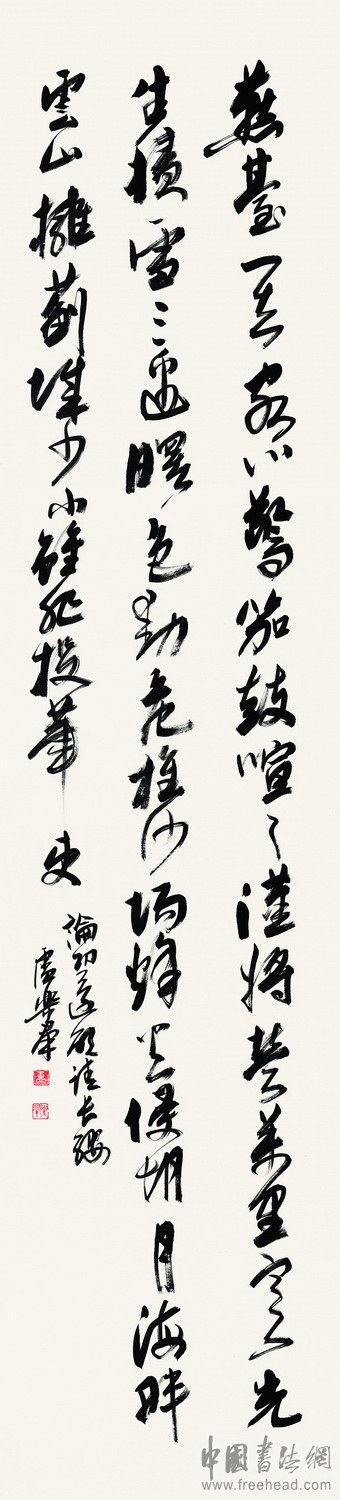 燕臺一去客心驚笳鼓喧々漢將營萬里寒光
生積雪三邊曙色動危旌沙場烽火侵胡月海畔
雲山擁薊城少小雖非投筆吏
論功還欲請長纓
中國書法網
www.freehead.com